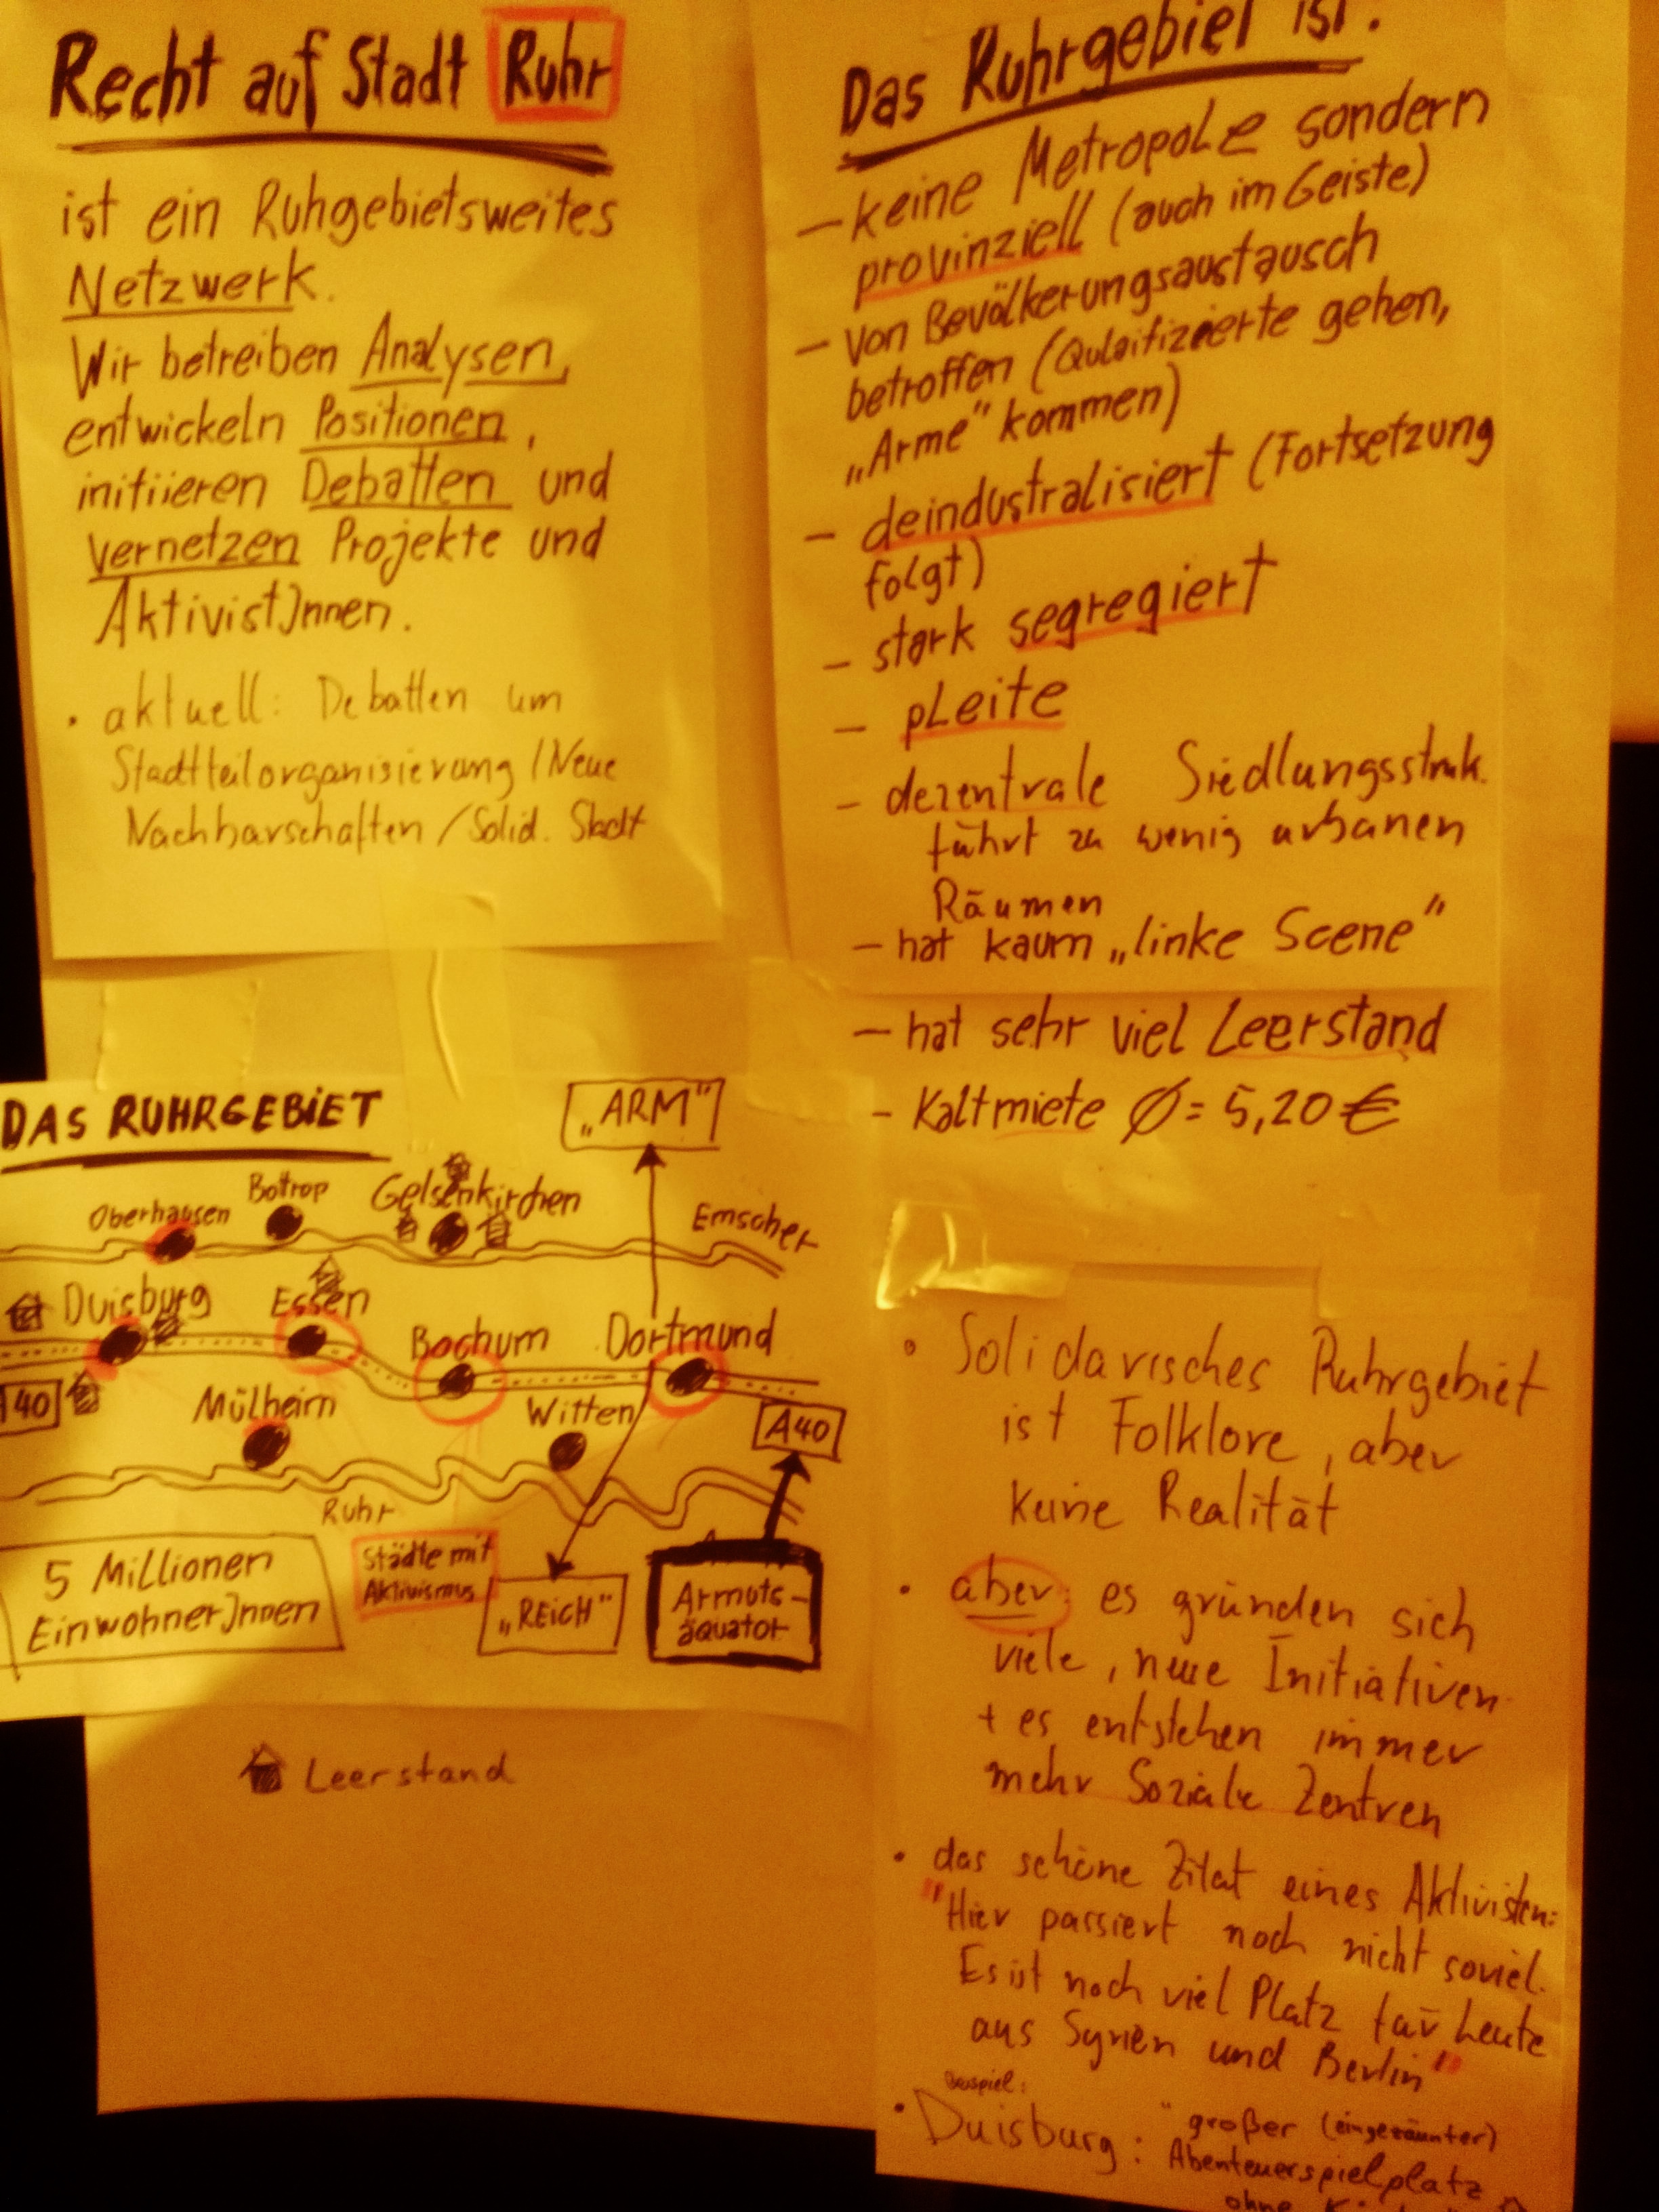 Recht auf Stadt Ruhr
ist ein Ruhgebietsweites
Netzwerk.
Wir betreiben Analysen,
entwickeln Positionen,
initiieren Debatten und
vernetzen Projekte und
AktivistJnnen.
• aktuell: Debatten um
Stadtteilorganisierung / Neue
Nachbarschaften / Solid. Stadt
Das Ruhrgebiet ist:
– keine Metropole sondern
provinziell (auch im Geiste)
– von Bevölkerungsaustausch
betroffen (Qulaifizierte gehen,
„Arme" kommen)
– deindustralisiert (Fortsetzung
folgt)
– stark segregiert
– pleite
– dezentrale Siedlungsstruk.
führt zu wenig urbanen
Räumen
– hat kaum „linke Scene"
– hat sehr viel Leerstand
– Kaltmiete Ø = 5,20 €
DAS RUHRGEBIET
„ARM"
Oberhausen
Bottrop
Gelsenkirchen
Emscher
Duisburg
Essen
Bochum
Dortmund
A40
Mülheim
Witten
A40
Ruhr
5 Millionen
EinwohnerJnnen
Städte mit
Aktivismus
„REICH"
Armuts-
äquator
Leerstand
• Solidarisches Ruhrgebiet
ist Folklore, aber
keine Realität
• aber: es gründen sich
viele, neue Initiativen
+ es entstehen immer
mehr Soziale Zentren
• das schöne Zitat eines Aktivisten:
"Hier passiert noch nicht soviel.
Es ist noch viel Platz für Leute
aus Syrien und Berlin"
Beispiel:
• Duisburg: "großer (eingezäunter)
Abenteuerspielplatz
ohne